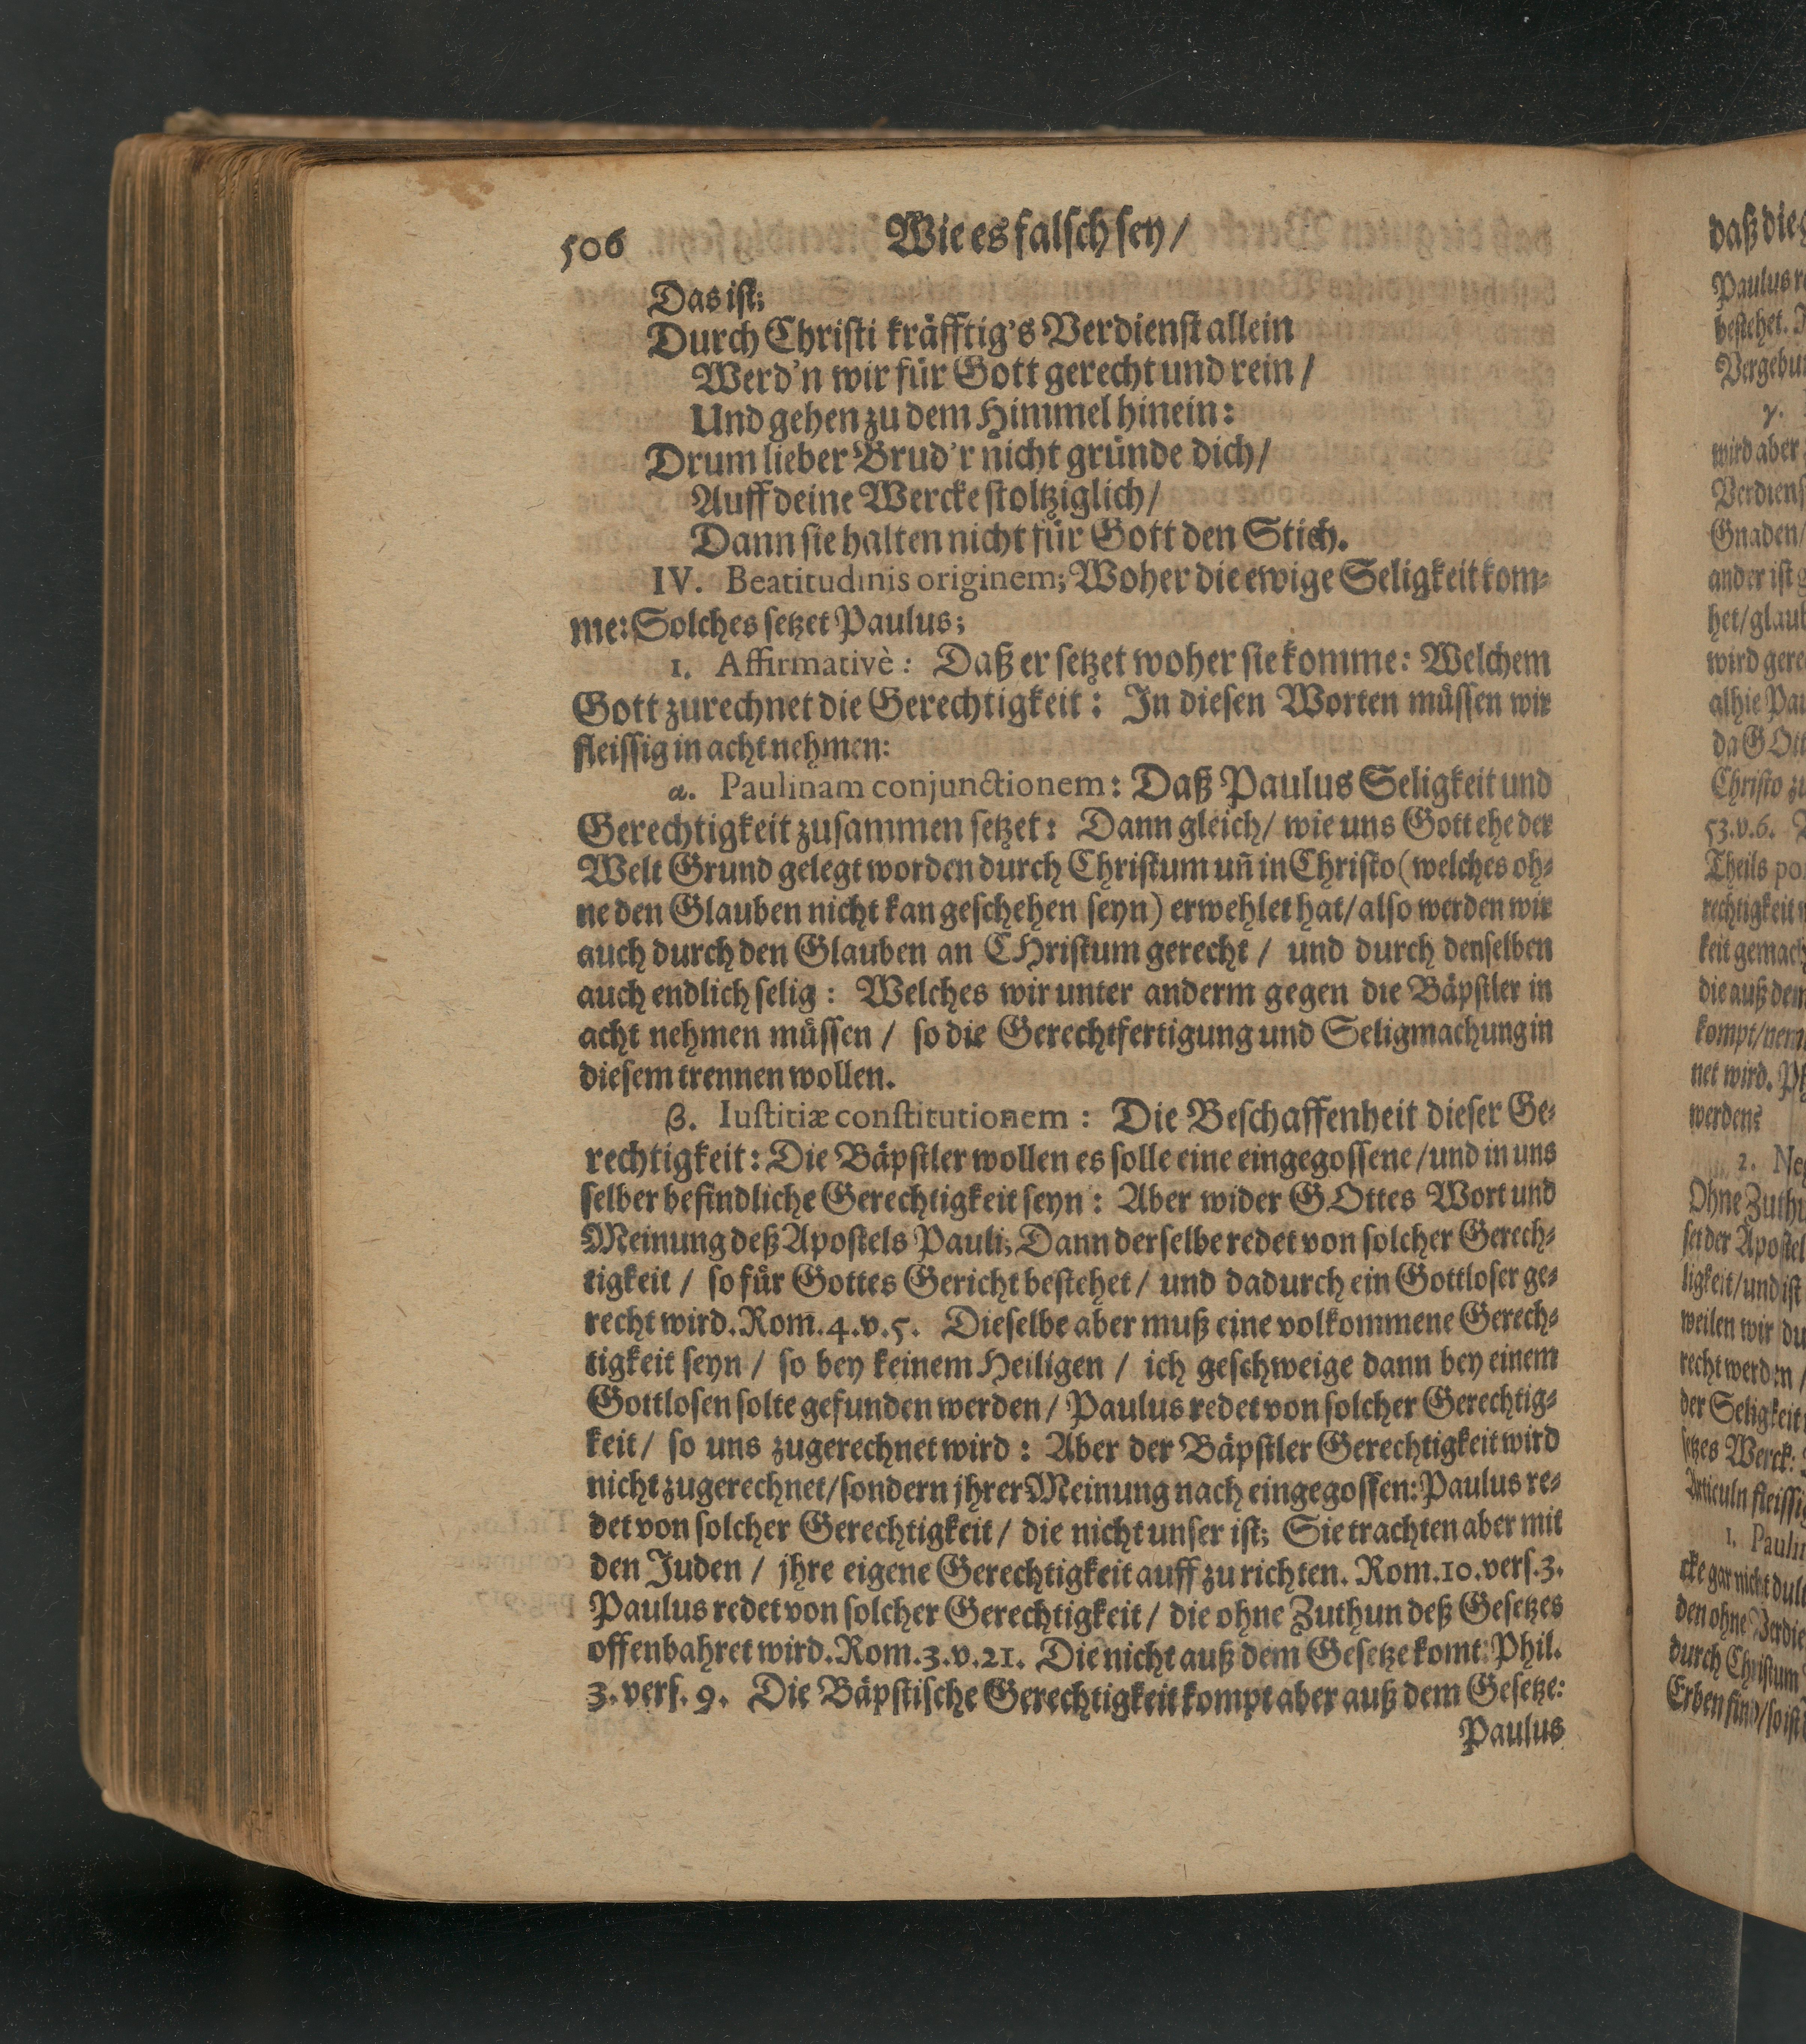 506 Wie es falsch sey/
Das ist;
Durch Christi kräfftig's Verdienst allein
Werd'n wir für Gott gerecht und rein/
Und gehen zu dem Himmel hinein:
Drum lieber Brud'r nicht gründe dich/
Auff deine Wercke stoltziglich/
Dann sie halten nicht für Gott den Stich.
IV. Beatitudinis originem; Woher die ewige Seligkeit kom-
me: Solches setzet Paulus;
1. Affirmativè: Daß er setzet woher sie komme: Welchem
Gott zurechnet die Gerechtigkeit: In diesen Worten müssen wir
fleissig in acht nehmen:
α. Paulinam conjunctionem: Daß Paulus Seligkeit und
Gerechtigkeit zusammen setzet: Dann gleich/ wie uns Gott ehe der
Welt Grund gelegt worden durch Christum uñ in Christo (welches oh-
ne den Glauben nicht kan geschehen seyn) erwehlet hat/ also werden wir
auch durch den Glauben an CHristum gerecht/ und durch denselben
auch endlich selig: Welches wir unter anderm gegen die Bäpstler in
acht nehmen müssen/ so die Gerechtfertigung und Seligmachung in
diesem trennen wollen.
β. Iustitiæ constitutionem: Die Beschaffenheit dieser Ge-
rechtigkeit: Die Bäpstler wollen es solle eine eingegossene/ und in uns
selber befindliche Gerechtigkeit seyn: Aber wider GOttes Wort und
Meinung deß Apostels Pauli; Dann derselbe redet von solcher Gerech-
tigkeit/ so für Gottes Gericht bestehet/ und dadurch ein Gottloser ge-
recht wird. Rom. 4. v. 5. Dieselbe aber muß eine volkommene Gerech-
tigkeit seyn/ so bey keinem Heiligen/ ich geschweige dann bey einem
Gottlosen solte gefunden werden/ Paulus redet von solcher Gerechtig-
keit/ so uns zugerechnet wird: Aber der Bäpstler Gerechtigkeit wird
nicht zugerechnet/ sondern jhrer Meinung nach eingegossen: Paulus re-
det von solcher Gerechtigkeit/ die nicht unser ist; Sie trachten aber mit
den Juden/ jhre eigene Gerechtigkeit auff zu richten. Rom. 10. vers. 3.
Paulus redet von solcher Gerechtigkeit/ die ohne Zuthun deß Gesetzes
offenbahret wird. Rom. 3. v. 21. Die nicht auß dem Gesetze komt: Phil.
3. vers. 9. Die Bäpstische Gerechtigkeit kompt aber auß dem Gesetze:
Paulus
daß die
Paulus
bestehet.
γ.
wird aber
Gnaden/
ander ist
het/ glau
wird
alhie
da GOtt
Christo
53. v. 6.
Theils
rechtigkeit
keit
die auß dem
kompt/
net wird.
werden?
2.
Ohne
set der Apostel
ligkeit/ und ist
weilen wir
recht werden/
der Seligkeit
setzes Werck:
Articuln
1.
cke gar nicht
den ohne
durch Christum
Erben sind/ so ist